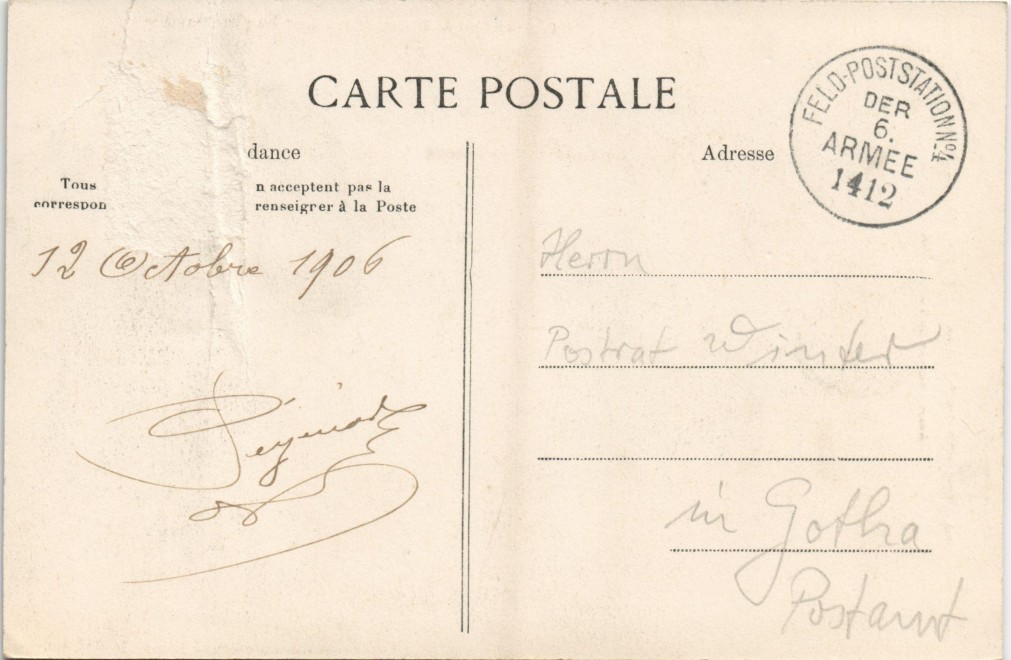 CARTE POSTALE
dance
Tous n acceptent pas la
correspon renseigrer à la Poste
12 Octobre 1906
Adresse
FELD-POSTSTATION No 4
DER
6.
ARMEE
1412
Herrn
Postrat Winter
in Gotha
Postamt